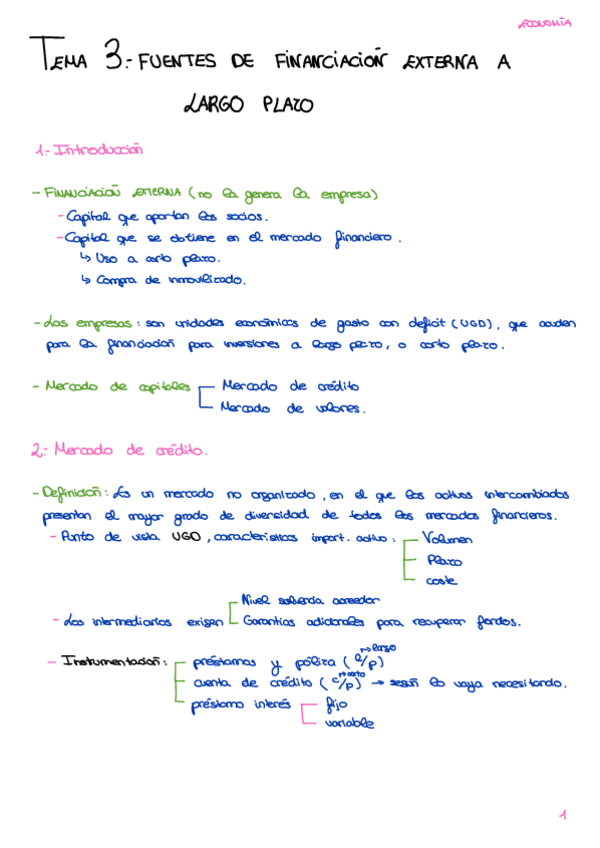 ECONOMÍA
TEMA 3.- FUENTES DE FINANCIACIÓN EXTERNA A
LARGO PLAZO
1.- Introducción
- FINANCIACIÓN EXTERNA (no la genera la empresa)
- Capital que aportan los socios.
- Capital que se obtiene en el mercado financiero.
↳ Uso a corto plazo.
↳ Compra de inmovilizado.
- Las empresas: son unidades económicas de gasto con deficit (UGD), que acuden
para la financiación para inversiones a largo plazo, o corto plazo.
- Mercado de capitales Mercado de crédito
Mercado de valores.
2.- Mercado de crédito.
- Definición: Es un mercado no organizado, en el que los activos intercambiados
presentan el mayor grado de diversidad de todos los mercados financieros.
- Punto de vista UGD, características import. activo: Volumen
Plazo
coste
Nivel solvencia acreedor
- Los intermediarios exigen Garantías adicionales para recuperar fondos.
→ largo
- Instrumentación: préstamos y póliza (l/p)
→ corto
cuenta de crédito (c/p) → según lo vaya necesitando.
préstamo interés fijo
variable
1